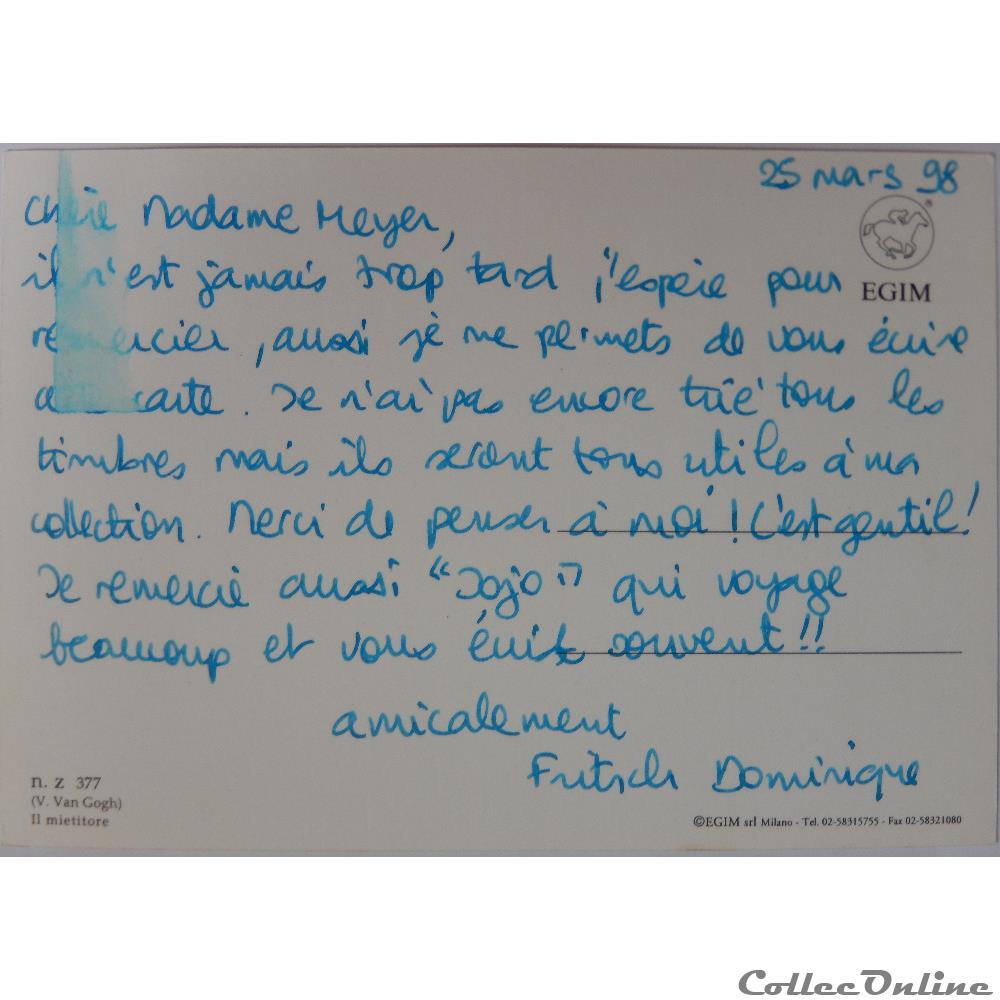 25 mars 98
Chère Madame Meyer,
EGIM
il n'est jamais trop tard j'espère pour
remercier, aussi je me permets de vous écrire
cette carte. Je n'ai pas encore trié tous les
timbres mais ils seront tous utiles à ma
collection. Merci de penser à moi ! C'est gentil !
Je remercie aussi "Jojo" qui voyage
beaucoup et vous écrit souvent !!
amicalement
Fritsch Dominique
n. z 377
(V. Van Gogh)
Il mietitore
©EGIM srl Milano - Tel. 02-58315755 - Fax 02-58321080
CollecOnline